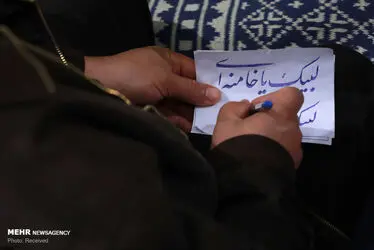 لبیک یا خامنه ای
لبیک
MEHR NEWSAGENCY
Photo: Received